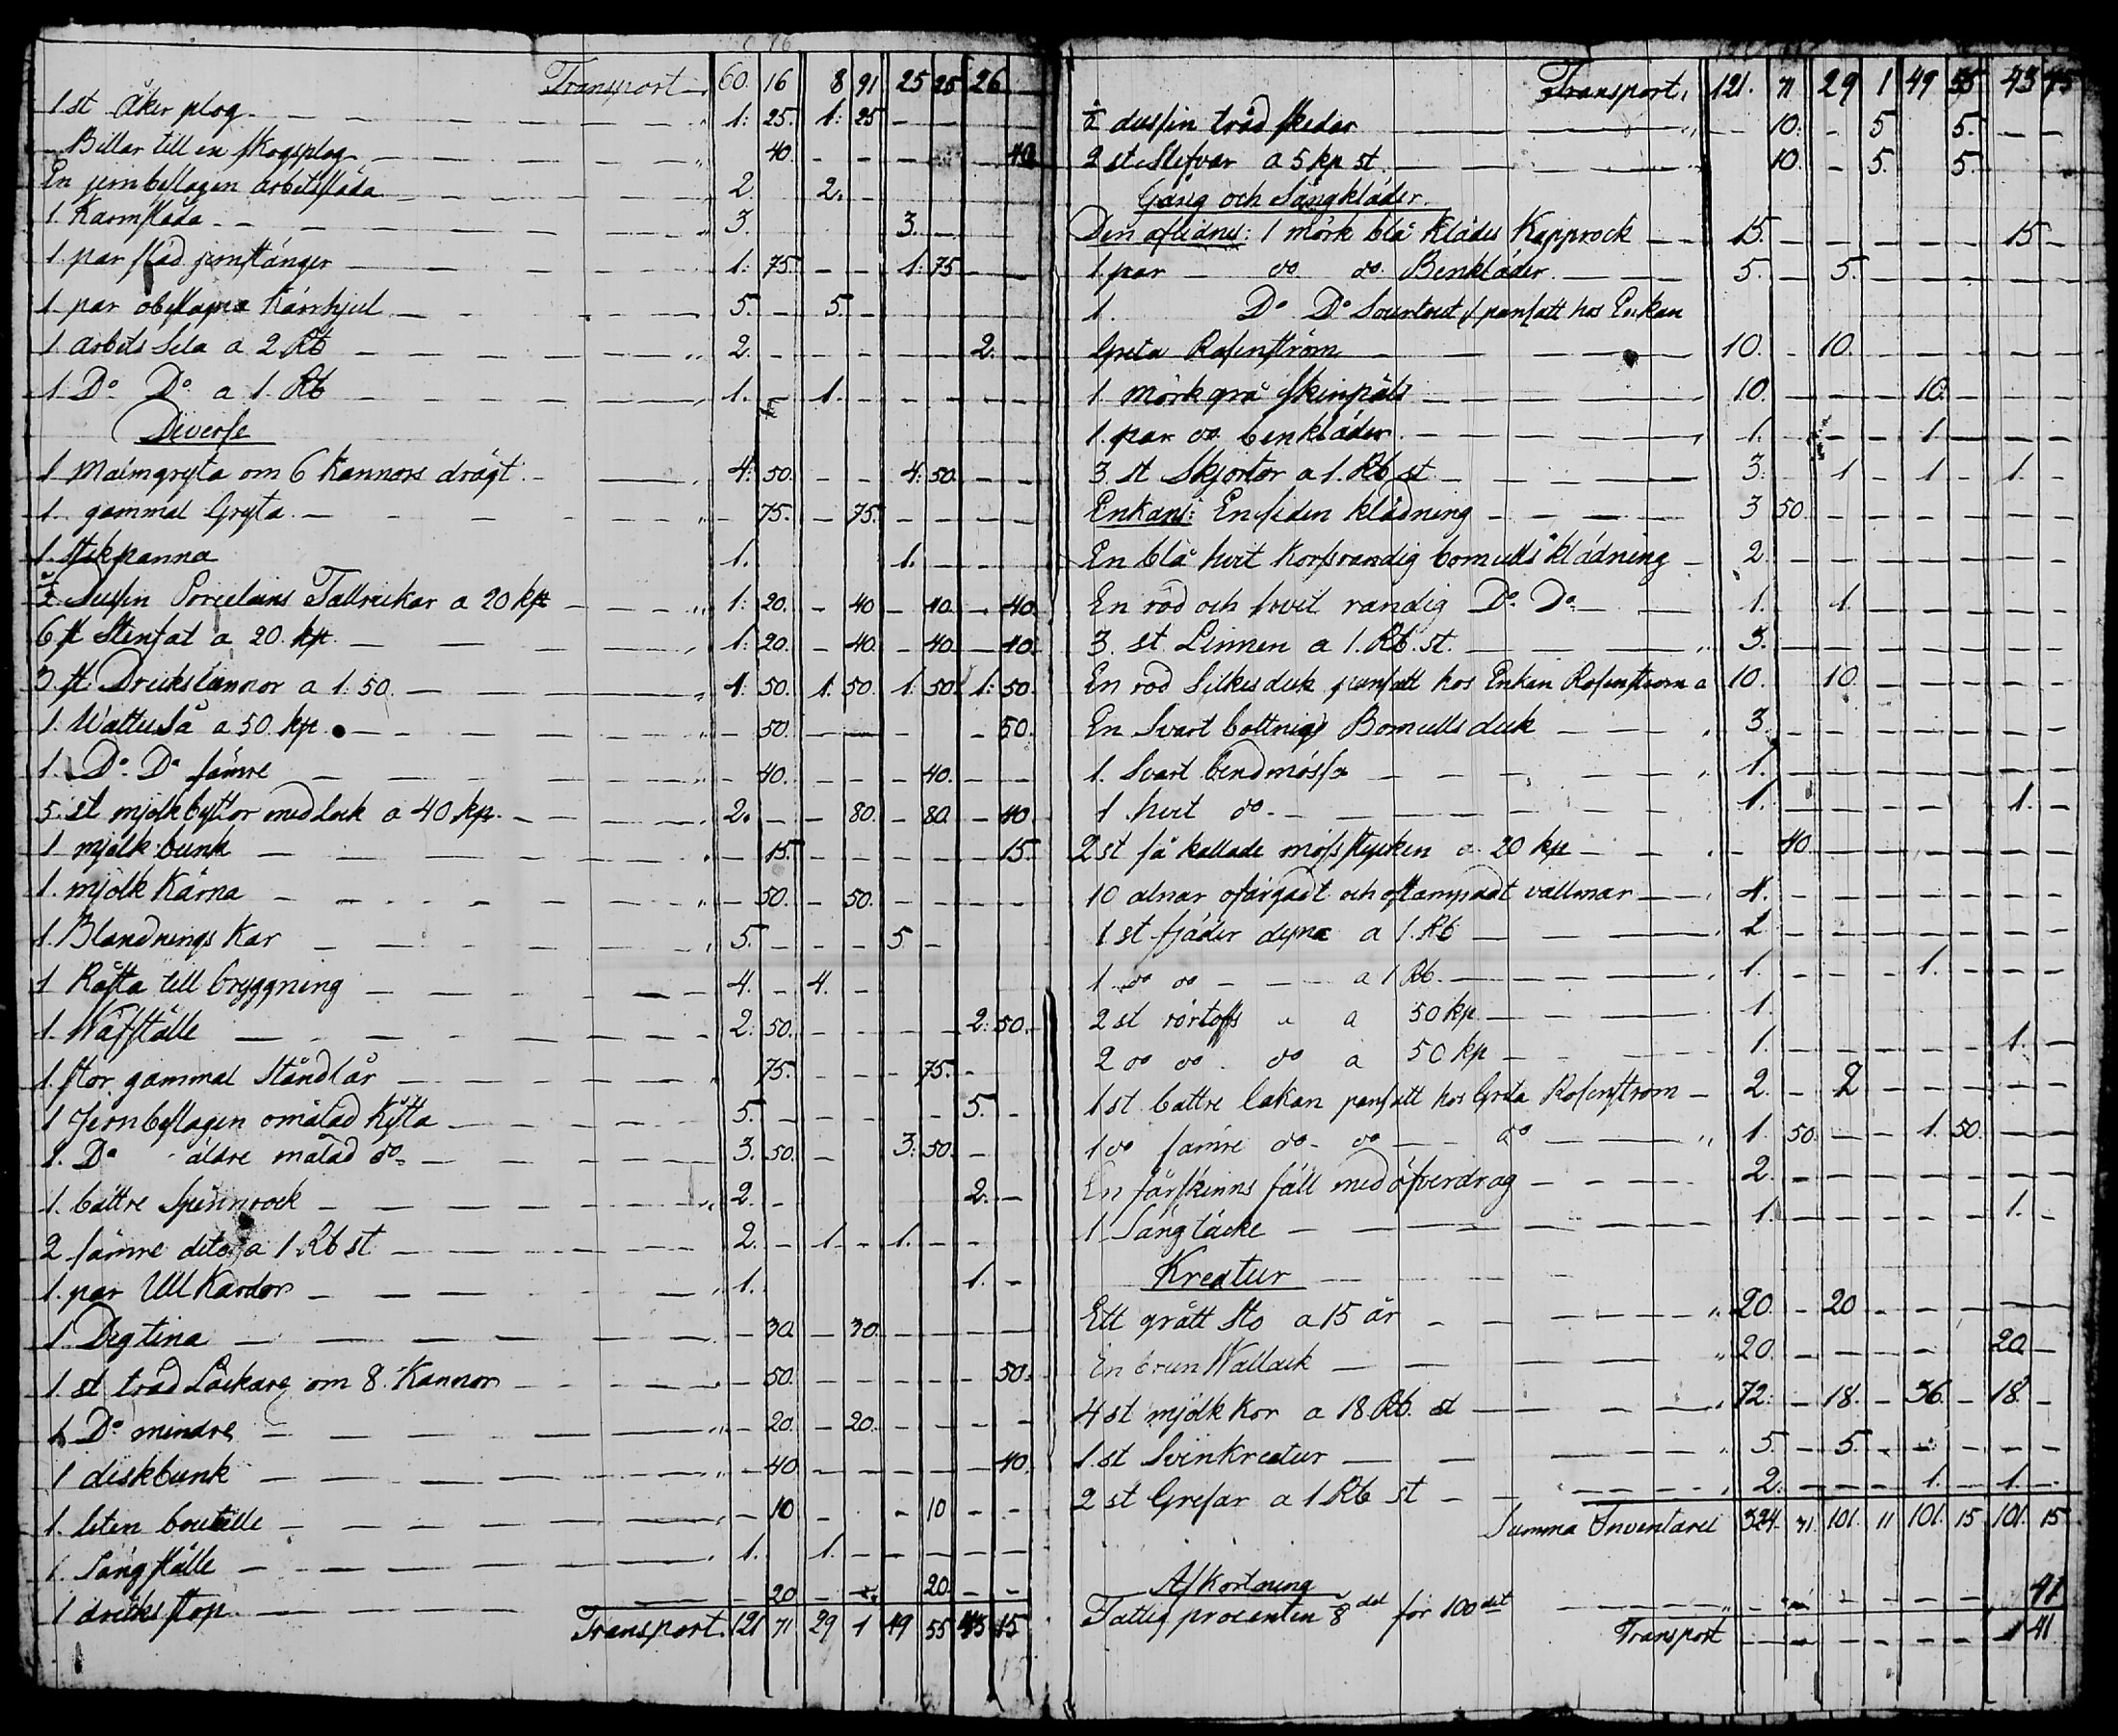 Transport 60. 16 8 91 25 25 26
1 st åker plog 1: 25. 1: 25
Billar till en skogsplog 40 40
En jernbeslagen arbetssläda 2. 2.
1. Karmsläda 3. 3.
1. par släd jernstänger 1: 75. 1: 75
1. par obeslagna Kärrhjul 5. 5.
1 arbets Sela a 2 Rb 2. 2.
1. Do Do a 1. Rb 1. 1.
Diverse
1 Malmgryta om 6 Kannors drägt 4: 50. 4: 50.
1. gammal Gryta 75. 75.
1. stekpanna 1. 1.
½ Dussin Porcelains Tallrickar a 20 kp 1: 20. 40 40 40
6 st Stenfat a 20. kp. 1: 20. 40. 40. 40.
3 st Dricks kannor a 1: 50. 4: 50. 1. 50. 1. 50. 1: 50.
1. Wattuså a 50. kp. 50. 50.
1. Do Do sämre 40. 40.
5. st mjölkbyttor med lock a 40 kp. 2. 80. 80. 40
1 mjölk bunk 15. 15.
1. mjölk Kärna 50. 50.
1. Blandnings Kar 5. 5
1 Råsta till bryggning 4. 4.
1. Wäfställe 2. 50. 2: 50.
1. stor gammal Ståndlår 75. 75.
1 Jernbeslagen omålad Kista 5. 5.
1. Do äldre målad do 3. 50. 3: 50.
1. bättre Spinnrock 2. 2.
2 sämre dito a 1 Rb st 2. 1 1.
1. par Ull Kardor 1. 1.
1 Degtina 30. 30
1. st träd Läckare om 8. Kannor 50. 50.
1. Do mindre 20. 20.
1 diskbunk 40 40.
1. liten boutelle 10 10
1. Sängställe 1. 1.
1 dricks stop 20 20.
Transport. 121 71 29 1 49 55 43 15
Transport, 121. 71 29 1 49 55 43 15
½ dussin träd skedar 10. 5 5.
2 st Slefvar a 5 kp st. 10. 5. 5.
Gång och Sängkläder.
Den aflidnes: 1 mörk blå Klädes Kapprock 15. 15
1. par do do Benkläder 5. 5.
1. Do Do Sourtout pansatt hos Enkan
Greta Rosenström 10. 10.
1. mörk grå Skinpäls 10. 10.
1. par do benkläder 1. 1.
3. st Skjortor a 1. Rb st. 3. 1 1 1.
Enkans: En siden klädning 3 50
En blå hvit Korsrandig bomulls klädning 2.
En röd och hvit randig Do Do 1. 1.
3. st Linnen a 1. Rb. st. 3.
En röd Silkes duk pansatt hos Enkan Rosenström a 10. 10.
En Svart bottnig Bomulls duk 3.
1. Svart bindmössa 1.
1 hvit do 1. 1.
2 st så kallade mössstycken a 20 kp 40.
10 alnar ofärgadt och ostampadt vallmar 4.
1 st fjäder dyna a 1. Rb 1
1 do do a 1 Rb. 1. 1.
2 st a 50 kp 1.
2 do do do a 50 kp 1. 1.
1 st. bättre lakan pansatt hos Greta Rosenström 2. 2
1 do sämre do do do 1. 50. 1. 50.
En fårskinns fäll med öfverdrag 2.
1 Sängtäcke 1. 1.
Kreatur
Ett grått Sto a 15 år 20. 20
En brun Wallack 20. 20
4 st mjölk Kor a 18 Rb. st 72. 18. 36 18.
1. st Svinkreatur 5. 5.
2 st Grisar a 1 Rb st 2. 1. 1.
Summa Inventariet 324. 71. 101. 11 101. 15 101. 15
Afkortning
Fattig procenten 8 del för 100 det 41
Transport 41